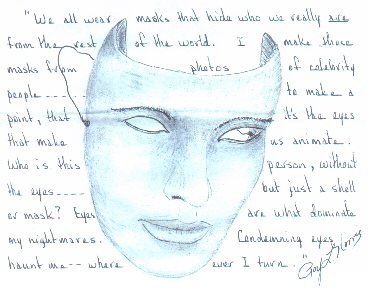 "We all wear masks that hide who we really are
from the rest of the world. I make these
masks from photos of celebrity
people---- to make a
point, that it's the eyes
that make us animate.
Who is this person, without
the eyes---- but just a shell
or mask? Eyes are what dominate
my nightmares. Condemning eyes
haunt me-- where ever I turn."